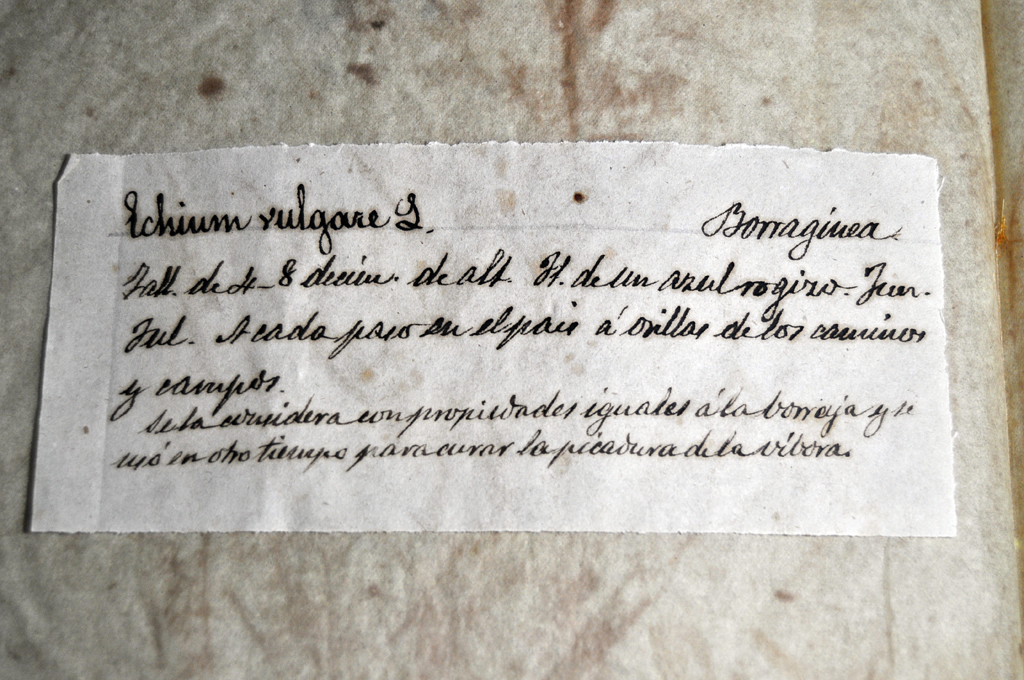 Echium vulgare L. Borraginea.
Tall. de 4-8 decim. de alt. Fl. de un azul rogizo. Jun.
Jul. A cada paso en el pais á orillas de los caminos
y campos.
Se la considera con propiedades iguales á la borraja y se
usó en otro tiempo para curar la picadura de la víbora.